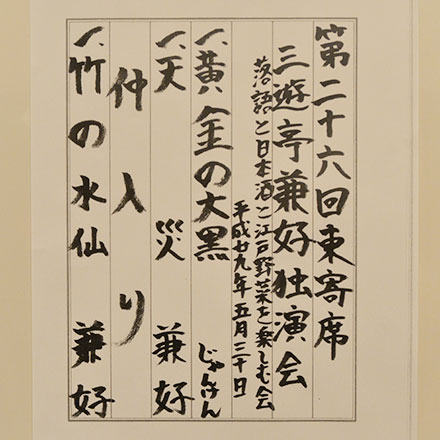 第二十六回東寄席
三遊亭兼好独演会
落語と日本酒と江戸野菜を楽しむ会
平成廿九年五月三十日
一、黄金の大黒 じゃんけん
一、天災 兼好
仲入り
一、竹の水仙 兼好